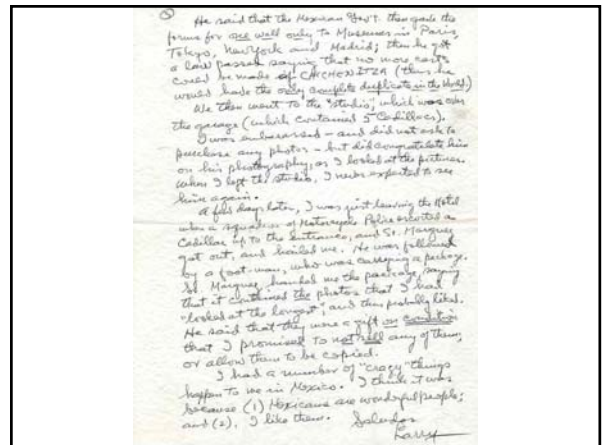 ③
He said that the Mexican Gov't. then gave the
forms for one wall only to Museums in Paris,
Tokyo, New York and Madrid; then he got
a law passed saying that no more casts
could be made of CHICHONITZA (thus he
would have the only complete duplicate in the World.)
We then went to the "studio", which was over
the garage (which contained 5 Cadillacs).
I was embarassed - and did not ask to
purchase any photos - but did congratulate him
on his photography, as I looked at the pictures.
When I left the studio, I never expected to see
him again.
A few days later, I was just leaving the Hotel
when a squadron of Motorcycle Police escorted a
Cadillac up to the entrance, and Sr. Marquez
got out, and hailed me. He was followed
by a foot-man, who was carrying a package.
Sr. Marquez handed me the package, saying
that it contained the photos that I had
"looked at the longest", and thus probably liked.
He said that they were a gift on condition
that I promised to not sell any of them,
or allow them to be copied.
I had a number of "crazy" things
happen to me in Mexico. I think it was
because (1) Mexicans are wonderful people;
and (2), I like them.
Saludos
Larry